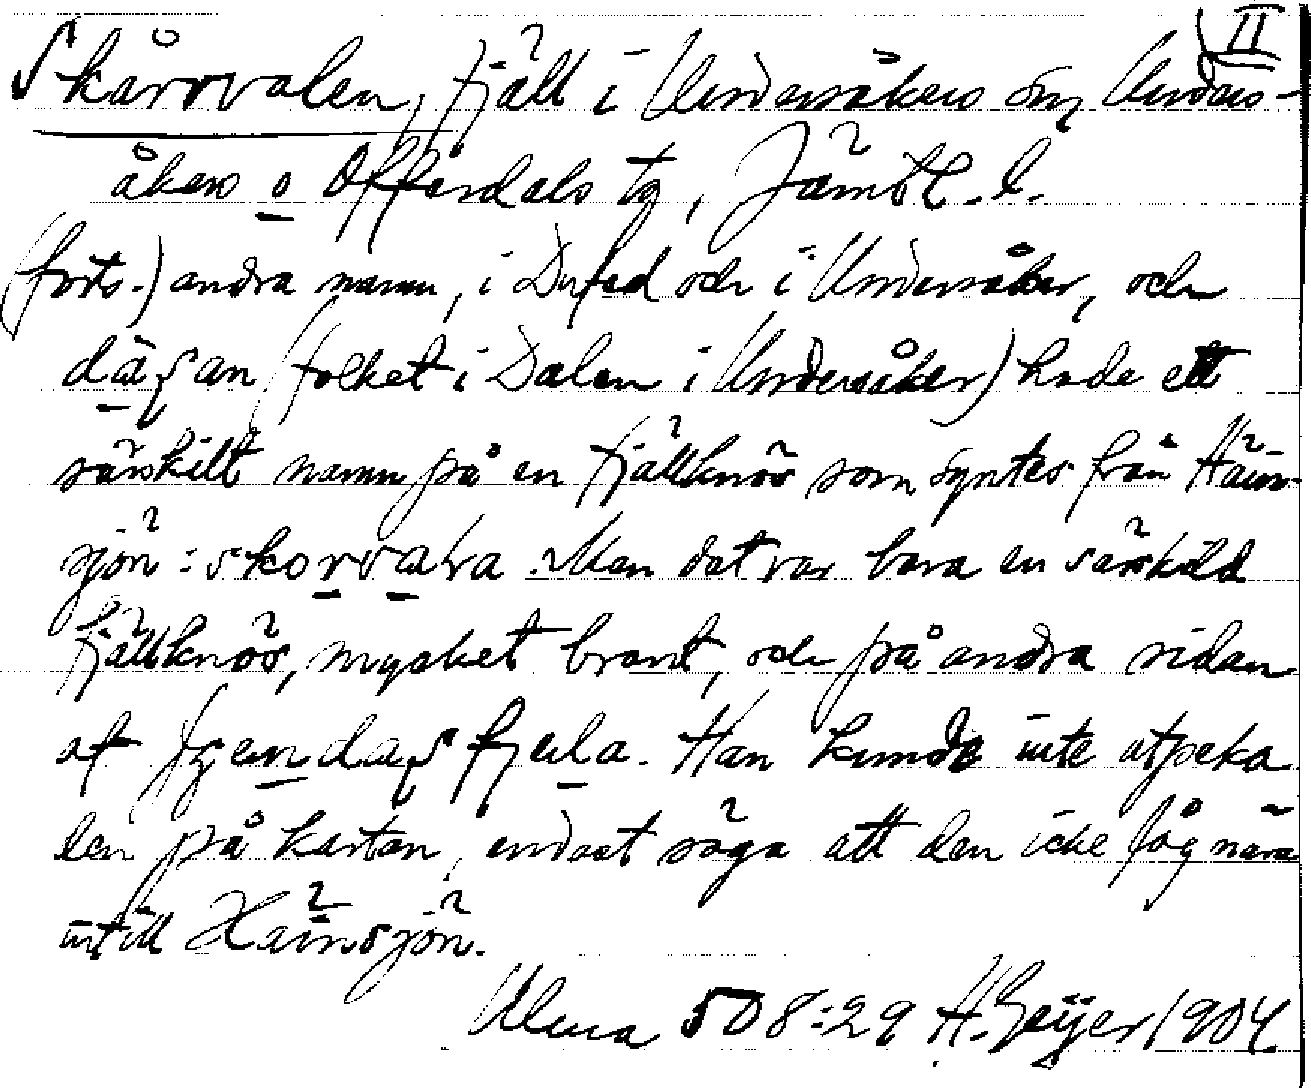 II
Skårrvalen, fjäll i Undersåkers sn, Unders-
åkers o Offerdals tg, Jämtl. l.
(forts.) andra namn, i Dufed och i Undersåker, och
(folket i Dalen i Undersåker) hade ett
särskilt namn på en fjällknös som syntes från Häin-
sjön: skorrvala. Men dat var bara en särskild
fjällknös, mycket brant, och på andra sidan
af fjeula. Han kunde inte utpeka
den på kartan, endast säga att den icke låg nära
intill Häinsjön.
Ulma 508:29 H. Geijer 1904